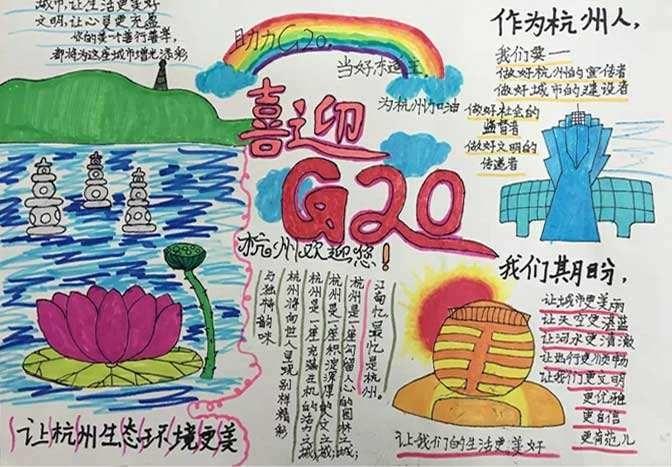 城市,让生活更美好
文明,让心灵更充盈
你的
都将为这座城市增光添彩
助力G20,
当好东道主,
为杭州加油
喜迎
G20
杭州欢迎您!
作为杭州人,
我们要——
做好杭州的宣传者
做好城市的建设者
做好社会的
监督者
做好文明的
传递者
江南忆,最忆是杭州。
杭州是一座勾留人心的园林之城;
杭州是一座积淀深厚的人文之城;
杭州是一座充满生机的活力之城;
杭州将向世人呈现别样精彩
与独特韵味
我们期盼,
让城市更美丽
让天空更湛蓝
让河水更清澈
让出行更顺畅
让我们更文明
更优雅
更自信
更有范儿
让我们的生活更美好
让杭州生态环境更美